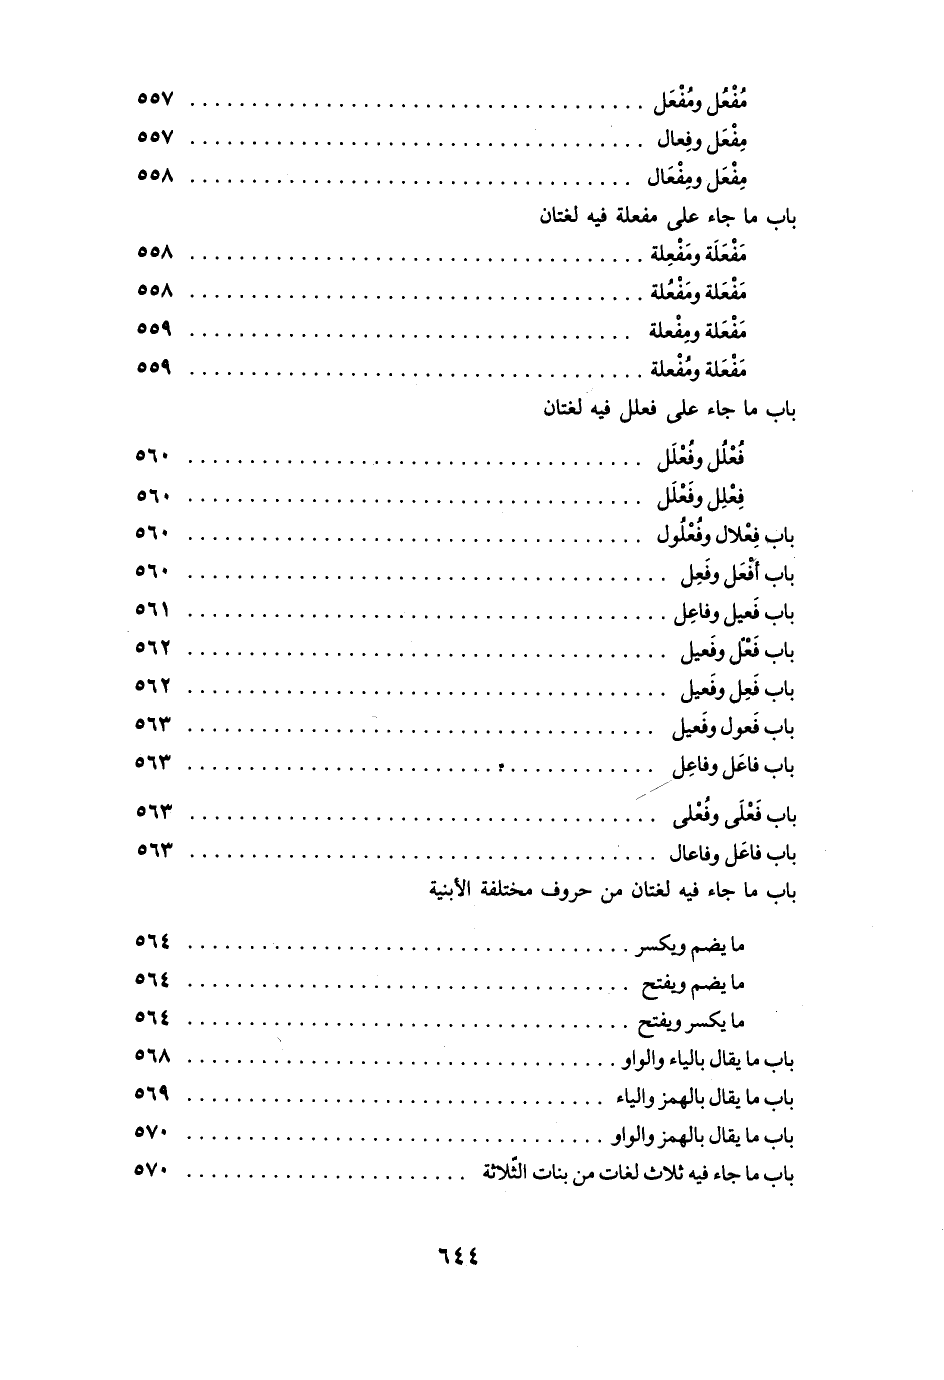 مُفْعُل ومُفْعَل ..................................... ٥٥٧
مِفْعَل وفِعال ..................................... ٥٥٧
مِفْعَل ومِفْعَال ..................................... ٥٥٨
باب ما جاء على مفعلة فيه لغتان
مَفْعَلَة ومَفْعِلة ..................................... ٥٥٨
مَفْعَلة ومَفْعُلة ..................................... ٥٥٨
مَفْعَلة ومِفْعلة ..................................... ٥٥٩
مَفْعَلة ومُفْعلة ..................................... ٥٥٩
باب ما جاء على فعلل فيه لغتان
فُعْلُل وفُعْلَل ..................................... ٥٦٠
فِعْلِل وفَعْلَل ..................................... ٥٦٠
باب فِعْلال وفُعْلُول ..................................... ٥٦٠
باب أَفْعَل وفَعِل ..................................... ٥٦٠
باب فَعيل وفاعِل ..................................... ٥٦١
باب فَعْل وفَعيل ..................................... ٥٦٢
باب فَعِل وفَعيل ..................................... ٥٦٢
باب فَعول وفَعيل ..................................... ٥٦٣
باب فاعَل وفاعِل ..................................... ٥٦٣
باب فَعْلَى وفُعْلى ..................................... ٥٦٣
باب فاعَل وفاعال ..................................... ٥٦٣
باب ما جاء فيه لغتان من حروف مختلفة الأبنية
ما يضم ويكسر ..................................... ٥٦٤
ما يضم ويفتح ..................................... ٥٦٤
ما يكسر ويفتح ..................................... ٥٦٤
باب ما يقال بالياء والواو ..................................... ٥٦٨
باب ما يقال بالهمز والياء ..................................... ٥٦٩
باب ما يقال بالهمز والواو ..................................... ٥٧٠
باب ما جاء فيه ثلاث لغات من بنات الثّلاثة ....................... ٥٧٠
٦٤٤